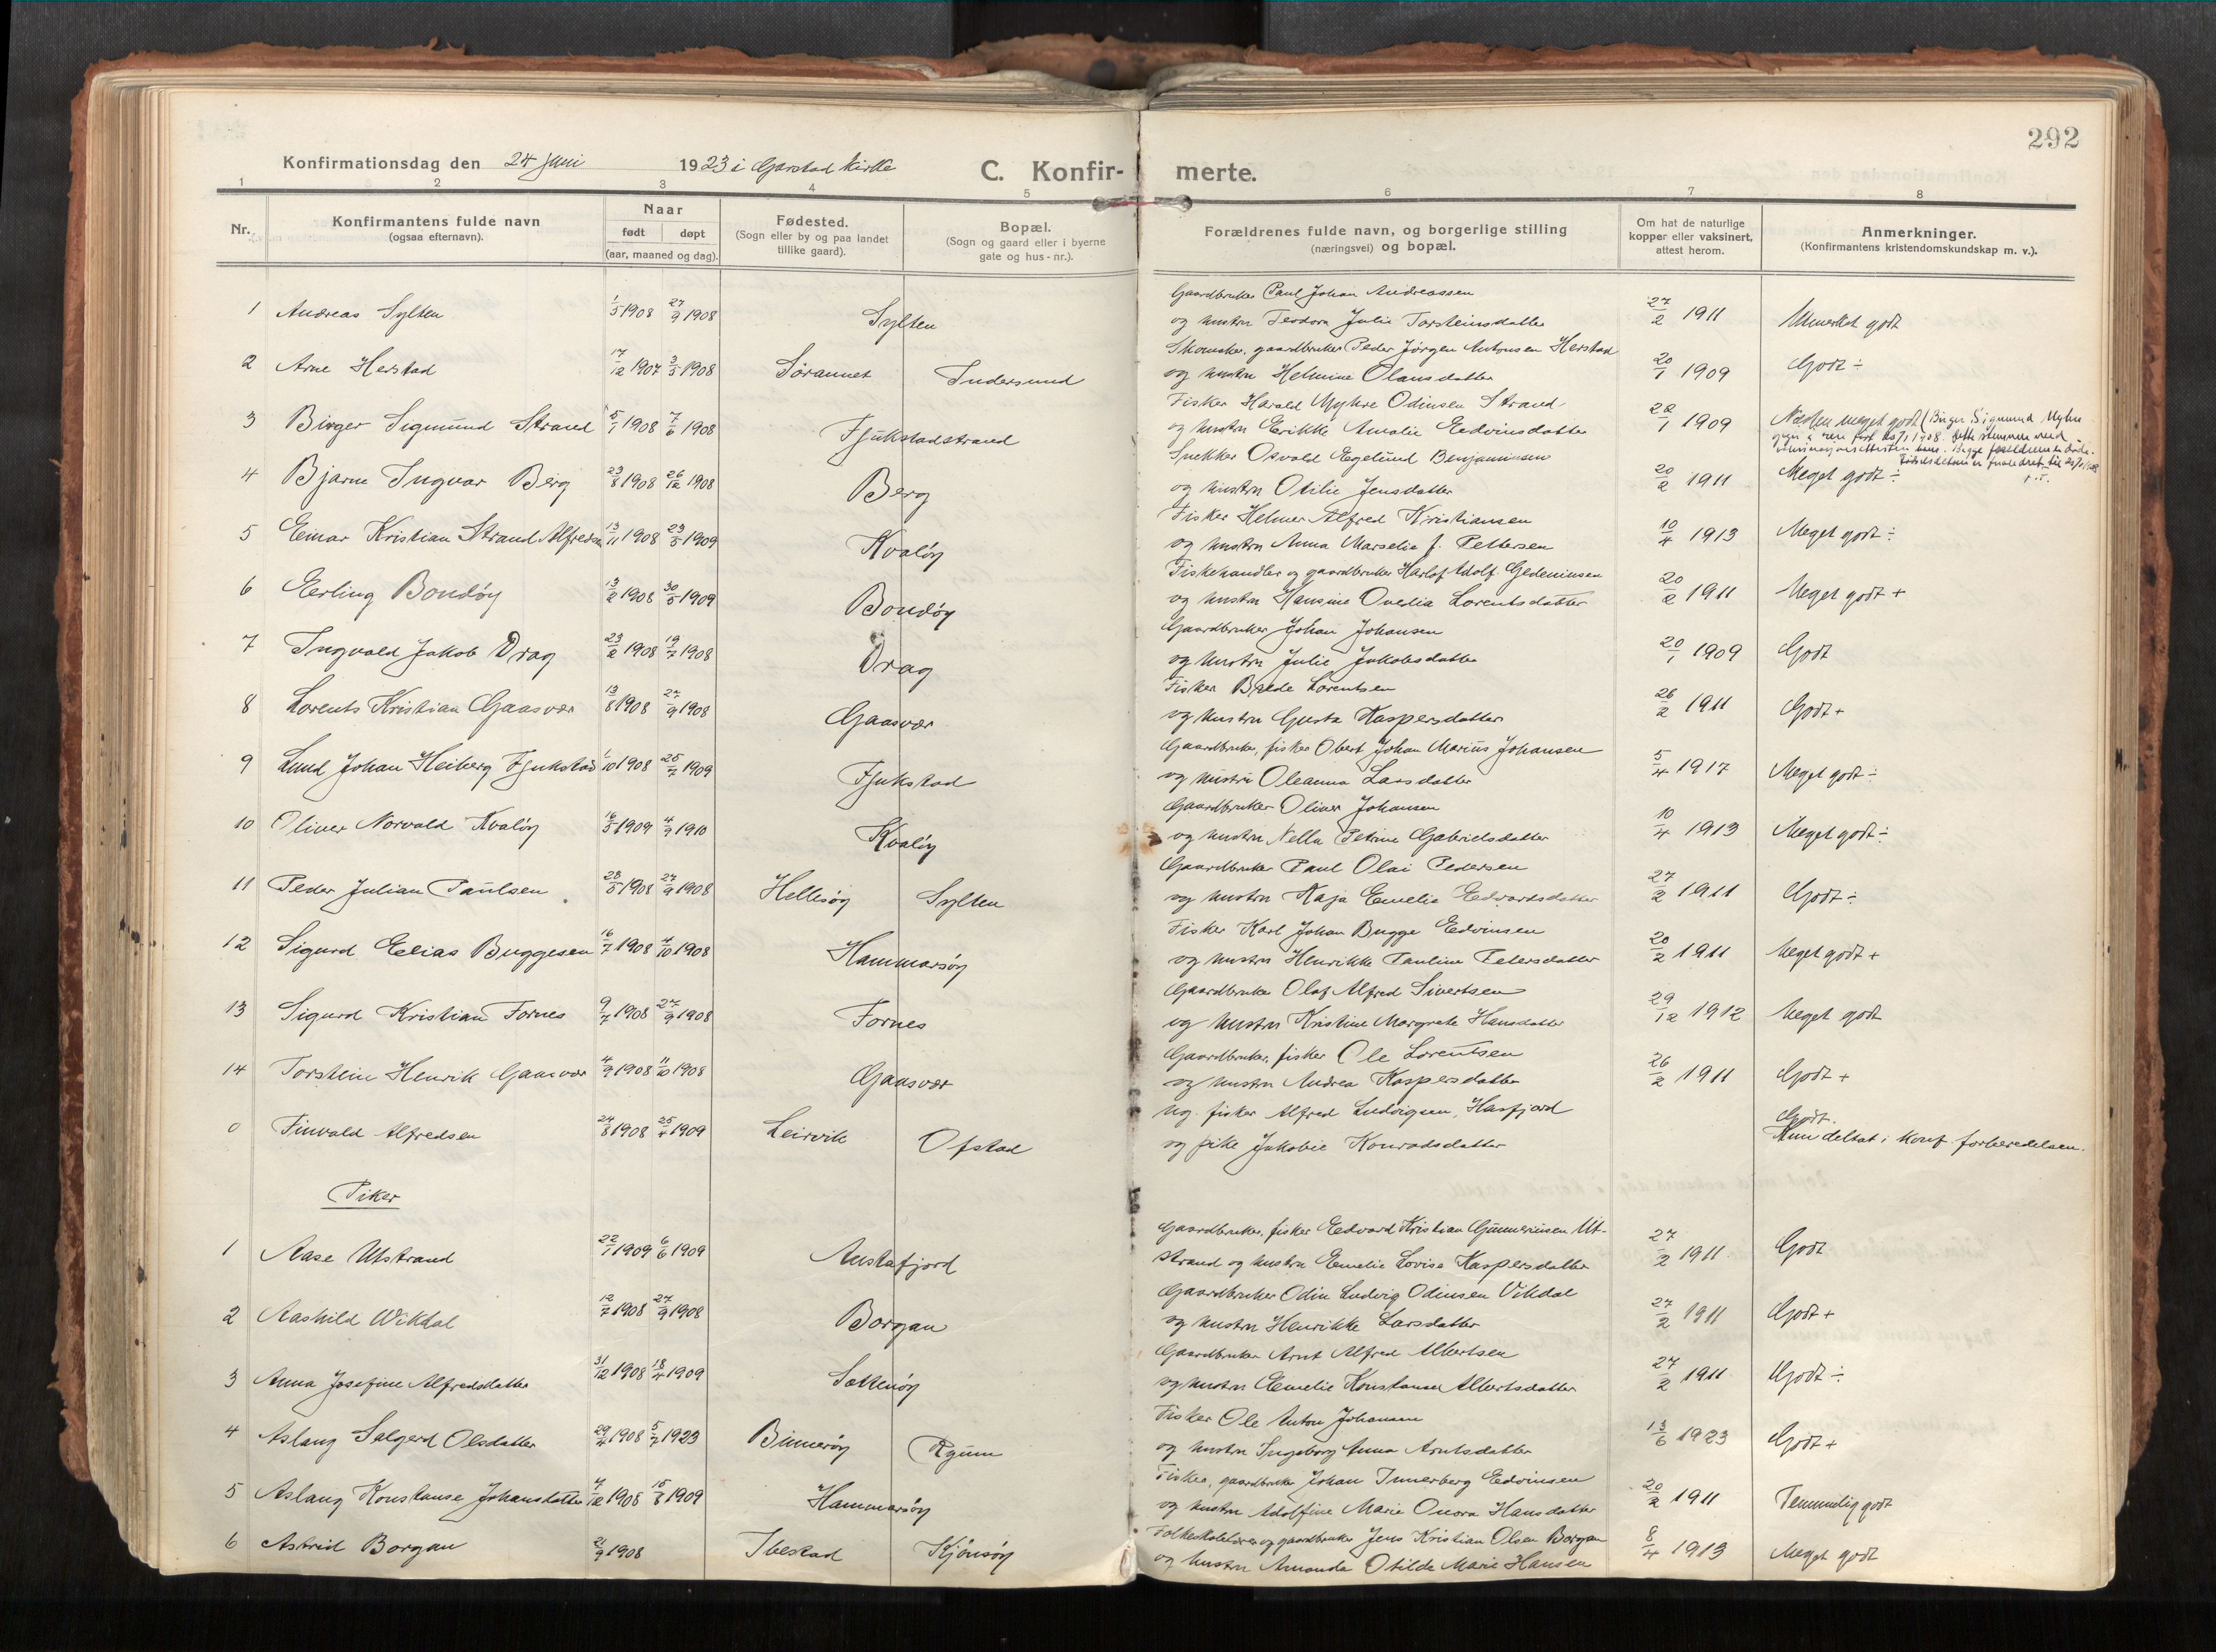 292
Konfirmationsdag den 24 juni 1923 i Garstad kirke
C. Konfir- merte.
1 2 3 4 5 6 7 8
Nr.
Konfirmantens fulde navn
(ogsaa efternavn).
Naar
født døpt
(aar, maaned og dag).
Fødested.
(Sogn eller by og paa landet
tillike gaard).
Bopæl.
(Sogn og gaard eller i byerne
gate og hus-nr.).
Forældrenes fulde navn, og borgerlige stilling
(næringsvei) og bopæl.
Om hat de naturlige
kopper eller vaksinert,
attest herom.
Anmerkninger.
(Konfirmantens kristendomskundskap m. v.).
Gaardbruker Paul Johan Andreassen
1 Andreas Sylten 1/5 1908 27/9 1908 Sylten og hustru Teodora Julie Torsteinsdatter 27/2 1911 Utmerket godt
Skomaker, gaardbruker Peder Jørgen Antonsen Herstad
2 Arne Herstad 17/12 1907 3/5 1908 Sørannet Indersund og hustru Helmine Olausdatter 20/1 1909 Godt ÷
Fisker Harald Myhre Odinsen Strand
3 Birger Sigmund Strand 5/1 1908 7/6 1908 Fjukstadstrand og hustru Erikke Amalie Eedvinsdatter 22/1 1909 Næsten meget godt (Birger Sigmund Myhre
Snekker Osvald Egelund Benjaminsen
4 Bjarne Ingvar Berg 23/8 1908 26/12 1908 Berg og hustru Otilie Jensdatter 20/2 1911 Meget godt ÷
Fisker Helmer Alfred Kristiansen
5 Einar Kristian Strand Alfredsen 13/11 1908 23/5 1909 Kvaløy og hustru Anna Marselie f. Pettersen 10/4 1913 Meget godt ÷
Fiskehandler og gaardbruker Harlof Adolf Gedeninsen
6 Eerling Bondøy 13/2 1908 30/5 1909 Bondøy og hustru Hansine Ovedia Lorentsdatter 20/2 1911 Meget godt +
Gaardbruker Johan Johansen
7 Ingvald Jakob Drag 23/2 1908 19/7 1908 Drag og hustru Julie Jakobsdatter 20/1 1909 Godt
Fisker Brede Lorentsen
8 Lorents Kristian Gaasvær 13/8 1908 27/9 1908 Gaasvær og hustru Gusta Kaspersdatter 26/2 1911 Godt +
Gaardbruker, fisker Obert Johan Marius Johansen
9 Lund Johan Heiberg Fjukstad 1/10 1908 25/7 1909 Fjukstad og hustru Oleanna Larsdatter 5/4 1917 Meget godt ÷
Gaardbruker Oliver Johansen
10 Oliver Norvald Kvaløy 16/5 1909 4/9 1910 Kvaløy og hustru Nella Petrine Gabrielsdatter 10/4 1913 Meget godt ÷
Gaardbruker Paul Olai Pedersen
11 Peder Julian Paulsen 28/5 1908 27/9 1908 Hellesøy Sylten og hustru Kaja Emelie Eedvardsdatter 27/2 1911 Godt ÷
Fisker Karl Johan Bugge Eedvinsen
12 Sigurd Eelias Buggesen 16/7 1908 4/10 1908 Hammarsøy og hustru Henrikke Pauline Petersdatter 20/2 1911 Meget godt +
Gaardbruker Olaf Alfred Sivertsen
13 Sigurd Kristian Fornes 9/7 1908 27/9 1908 Fornes og hustru Kristine Margrete Hansdatter 29/12 1912 Meget godt
Gaardbruker, fisker Ole Lorentsen
14 Torstein Henrik Gaasvær 4/9 1908 11/10 1908 Gaasvær og hustru Andrea Kaspersdatter 26/2 1911 Godt +
Ug. fisker Alfred Ludvigsen, Hasfjord
0 Finvald Alfredsen 24/8 1908 25/4 1909 Leirvik Ofstad og pike Jakobie Konradsdatter Godt.
Kun deltat i konf. forberedelsen.
Piker
Gaardbruker, fisker Eedvard Kristian Gunneriussen Ut-
1 Aase Utstrand 22/1 1909 6/6 1909 Austafjord strand og hustru Emelie Lovise Kaspersdatter 27/2 1911 Godt
Gaardbruker Odin Ludvig Odinsen Vikdal
2 Aashild Wikdal 12/7 1908 27/9 1908 Borgan og hustru Henrikke Larsdatter 27/2 1911 Godt +
Gaardbruker Arnt Alfred Albertsen
3 Anna Josefine Alfredsdatter 31/12 1908 18/4 1909 Sættenøy og hustru Emelie Konstanse Albertsdatter 27/2 1911 Godt ÷
Fisker Ole Anton Johansen
4 Aslaug Salgerd Olsdatter 29/4 1908 5/7 1923 Binnerøy Ryum og hustru Ingeborg Anna Arntsdatter 13/6 1923 Godt +
Fisker, gaardbruker Johan Innerberg Eedvinsen
5 Aslaug Konstanse Johansdatter 4/12 1908 15/8 1909 Hammarsøy og hustru Adolfine Marie Onora Hansdatter 20/2 1911 Temmelig godt
Folkeskolelærer og gaardbruker Jens Kristian Olsen Borgan
6 Astrid Borgan 2/9 1908 Ibestad Kjønsøy og hustru Amanda Otilde Marie Hansen 8/4 1913 Meget godt